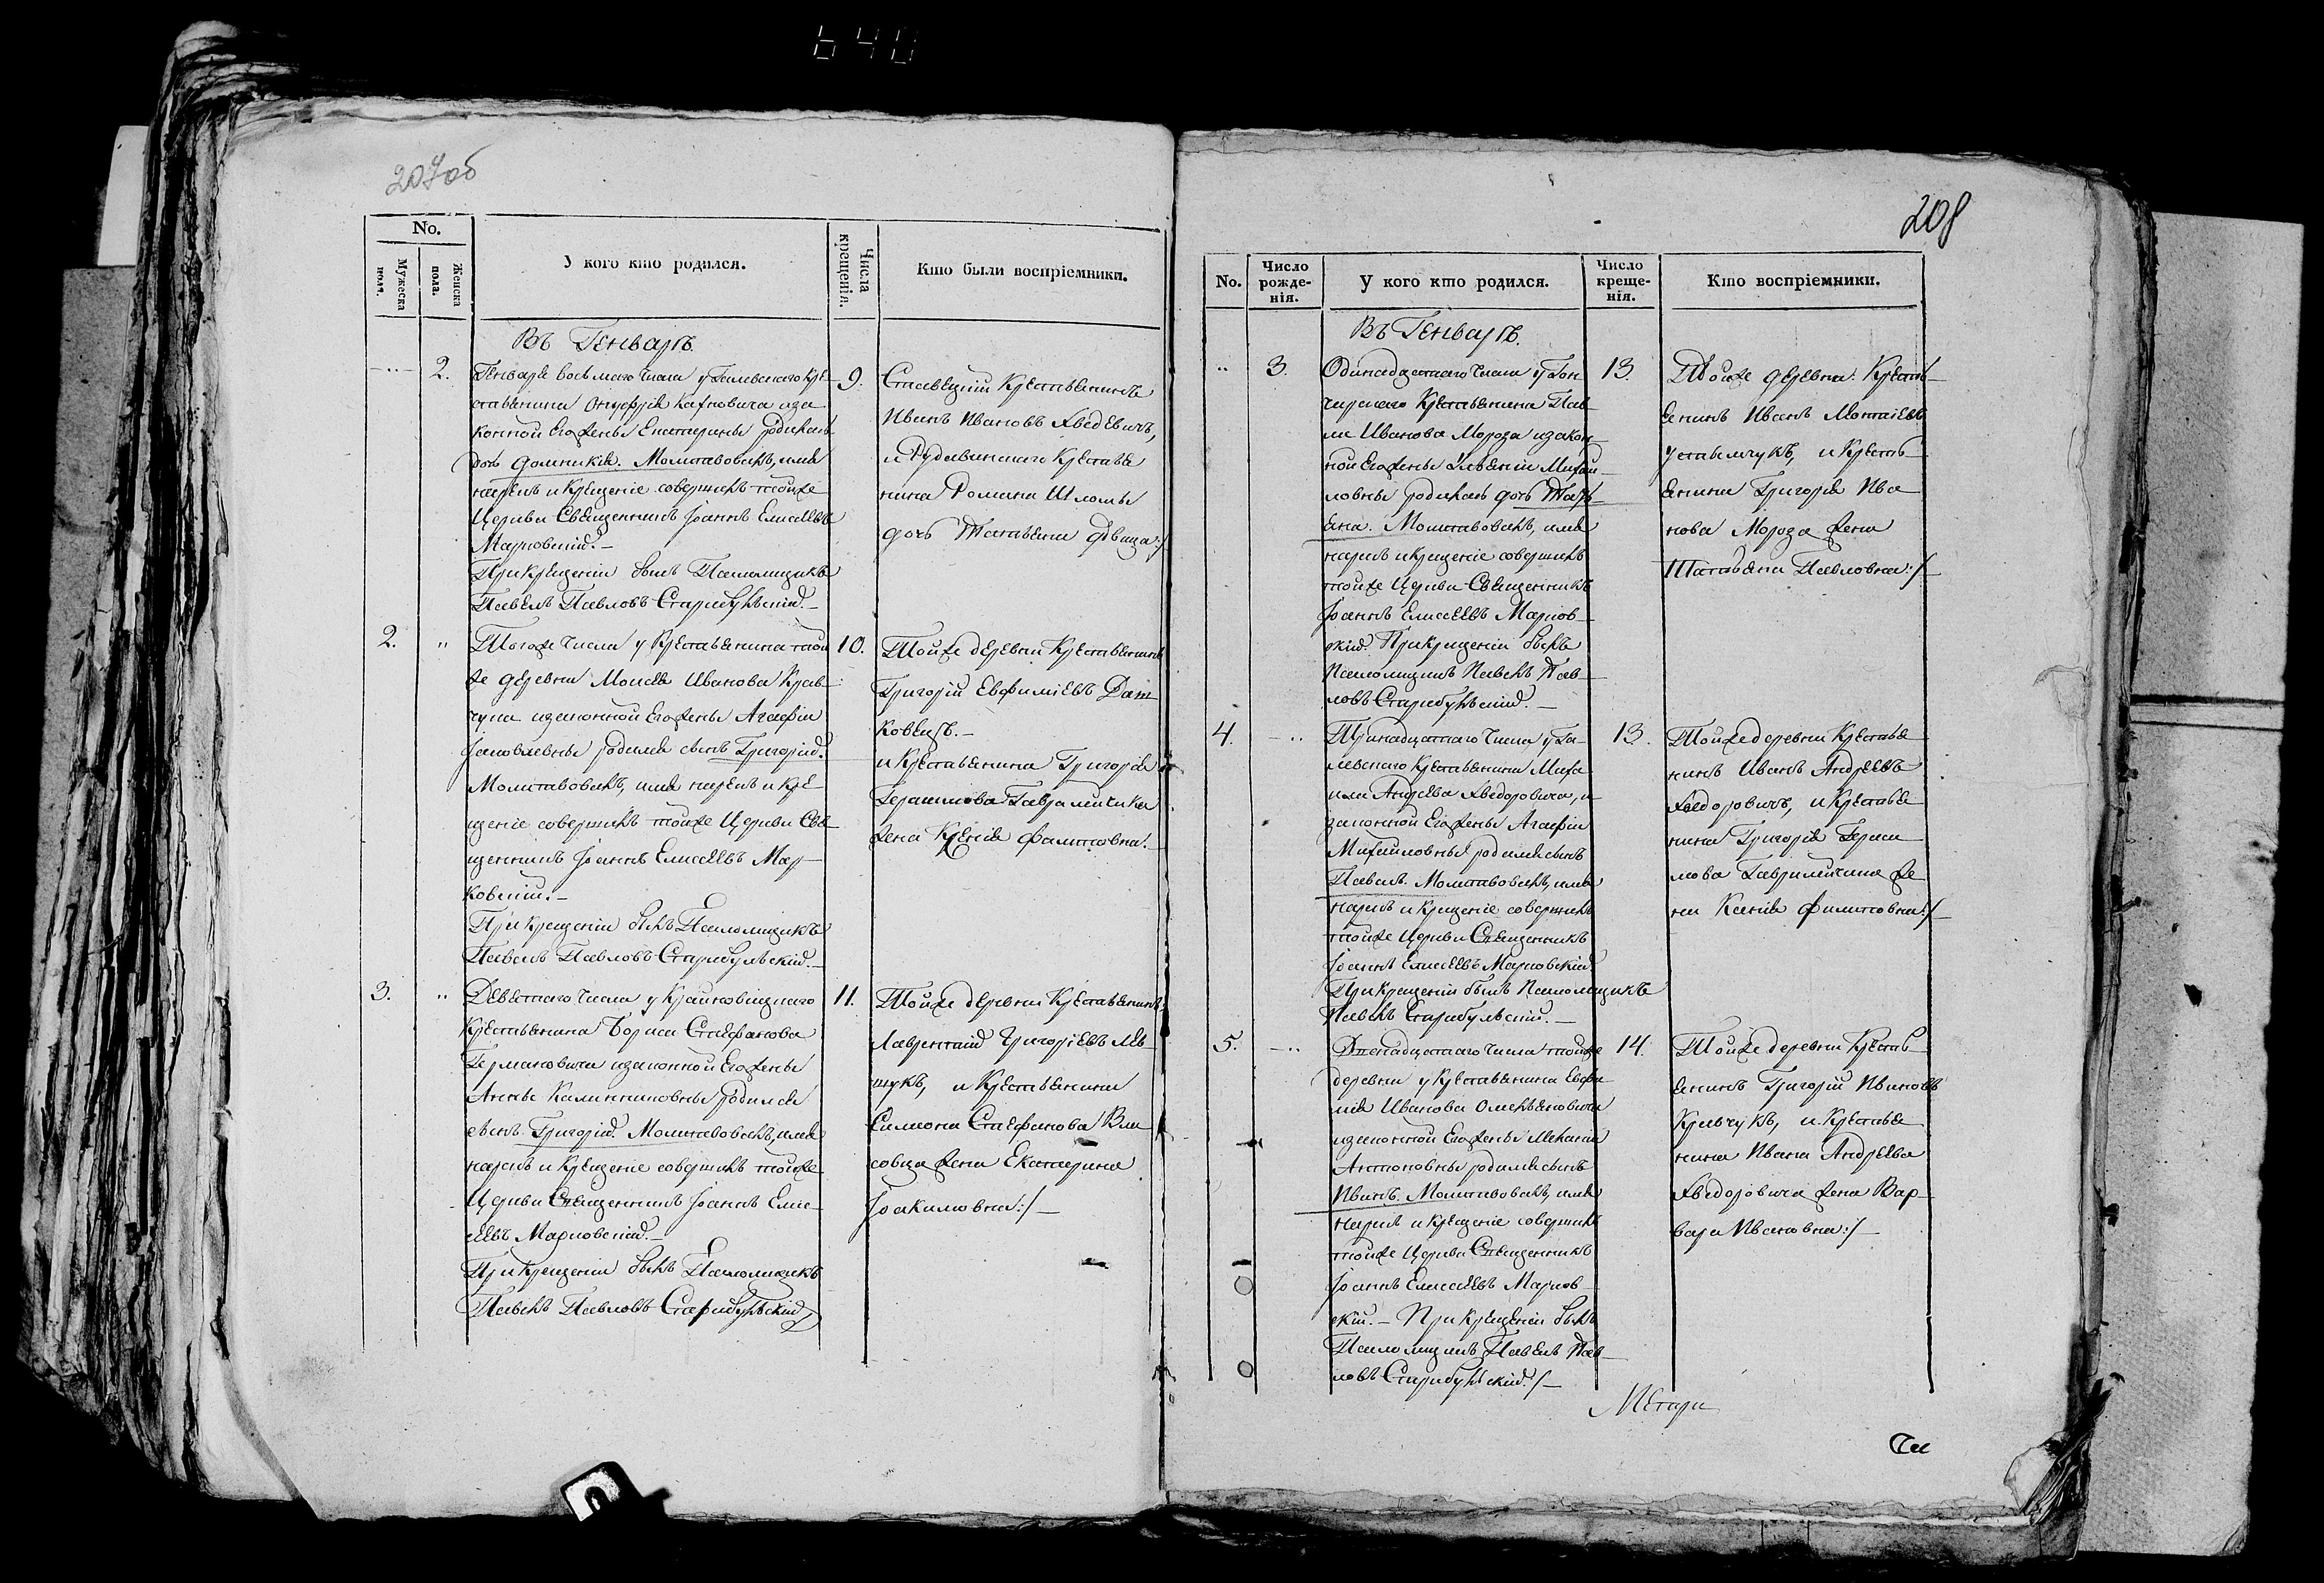 640
207об
No.
Мужеска пола.
Женска пола.
У кого кто родился.
Числа крещенія.
Кто были воспріемники.
Въ Генварѣ.
2.
Генваря восьмаго числа у Галевскаго Кре-
стьянина Онуфрія Кахновича иза
конной Его жены Екатерины родилась
дочь Домникія. Молитвовалъ, имя
нарекъ и Крещеніе совершилъ тойже
Церкви Священникъ Іоаннъ Елисеевъ
Марковскій.-
При Крещеніи былъ Паломщикъ
Павелъ Павловъ Старибульскій.-
9.
Ставецкій Крестьянинъ
Иванъ Ивановъ Хведевичъ,
и Крестья
нина Романа
дочь Татьяна Дѣвица:/
2.
"
Тогоже числа у Крестьянина той
же деревни Моисея Иванова Крав-
чука иззаконной Его жены Агафіи
Яковлевны родился сынъ Григорій.
Молитвовалъ, имя нарекъ и Кре
щеніе совершилъ тойже Церкви Свя
щенникъ Іоаннъ Елисеевъ Мар-
ковскій.-
При крещеніи былъ Паломщикъ
Павелъ Павловъ Старибульскій.-
10.
Тойже деревни Крестьянинъ
Григорій Евфиміевъ Дат
ковецъ.-
и Крестьянина Григорія
Герасимова Гаврамичика
жена Ксенія Филиповна.-
3.
"
Девятаго числа у
Крестьянина Бориса Стефанова
Германовича иззаконной Его жены
Анны Калинниковны родился
сынъ Григорій. Молитвовалъ, имя
нарекъ и Крещеніе совершилъ тойже
Церкви Священникъ Іоаннъ Елис-
еевъ Марковскій.-
При крещеніи былъ Паломщикъ
Павелъ Павловъ Старибульскій
11.
Тойже деревни Крестьянинъ
Лаврентій Григоріевъ Лев-
чукъ, и Крестьянина
Симона Стефанова Вла
совца жена Екатерина
Іоакимовна:/-
208
No.
Число рожде-нія.
У кого кто родился.
Число креще-нія.
Кто воспріемники.
Въ Генварѣ.
"
3.
Одинадцатаго числа у Гон
чарскаго Крестьянина Пав-
ла Иванова Мороза изакон-
ной Его жены Ульяніи Михай-
ловны родилась дочь Тать-
яна. Молитвовалъ, имя
нарекъ и крещеніе совершилъ
тойже Церкви Священникъ
Іоаннъ Елисеевъ Марков-
скій. При крещеніи былъ
Паломщикъ Павелъ Пав-
ловъ Старибульскій.-
13.
Тойже деревни Кресть-
янинъ Иванъ
и Кресть-
янина Григорія Ива
нова Мороза жена
Татьяна Павловна:/-
4.
Тринадцатаго числа у Га-
левскаго Крестьянина Миха
ила Андреева Хведоровича, и
законной Его жены Агафіи
Михайловны родился сынъ
Павелъ. Молитвовалъ, имя
нарекъ и крещеніе совершилъ
тойже Церкви Священникъ
Іоаннъ Елисеевъ Марковскій
При крещеніи былъ Паломщикъ
Павелъ Старибульскій.-
13.
Тойже деревни Крестья
нинъ Иванъ Андреевъ
Хведоровичъ, и Крестья
нина Григорія Гераси
мова Гаврамичика же
на Ксенія Филиповна:/-
5.
Двенадцатаго числа тойже
деревни у Крестьянина Евфи
мія Иванова Омельяновича
иззаконной Его жены Меланіи
Антоновны родился сынъ
Иванъ. Молитвовалъ, имя
нарекъ и крещеніе совершилъ
тойже Церкви Священникъ
Іоаннъ Елисеевъ Марков-
скій.- При крещеніи былъ
Паломщикъ Павелъ Пав-
ловъ Старибульскій:/-
14.
Тойже деревни Кресть-
янинъ Григорій Ивановъ
Кравчукъ, и Крестья
нина Ивана Андреева
Хведоровича жена Вар-
вара Ивановна:/-